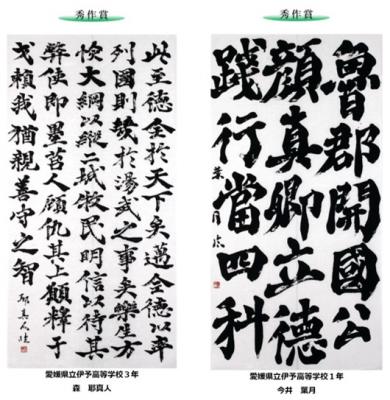 秀作賞
此至德全於天下矣邁全德以率
列國則幾於湯武之事矣樂生方
恢大綱以縱二城牧民明信以待其
弊使即墨莒人顧仇其上願釋干
戈賴我猶親善守之智
耶真人臨
愛媛県立伊予高等学校3年
森 耶真人
秀作賞
魯郡開國公
顔真卿立德
踐行當四科
葉月臨
愛媛県立伊予高等学校1年
今井 葉月